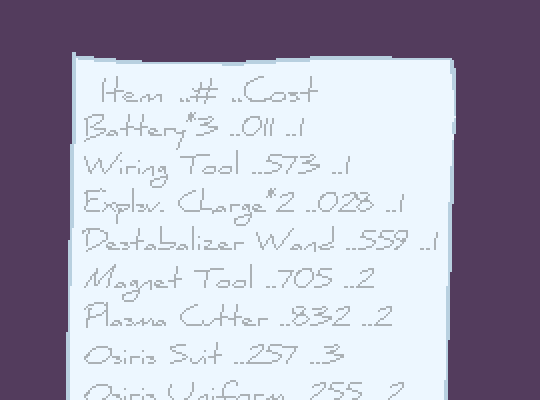 Item ..# ..Cost
Battery*3 ..011 ..1
Wiring Tool ..573 ..1
Explsv. Charge*2 ..028 ..1
Destabalizer Wand ..559 ..1
Magnet Tool ..705 ..2
Plasma Cutter ..832 ..2
Osiris Suit ..257 ..3
Osiris Uniform ..255 ..2